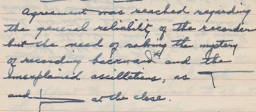 Agreement was reached regarding
the general reliabilty of the recorder
but the need of solving the mystery
of recording backward and the
unexplained oscillations, as
and at the close.